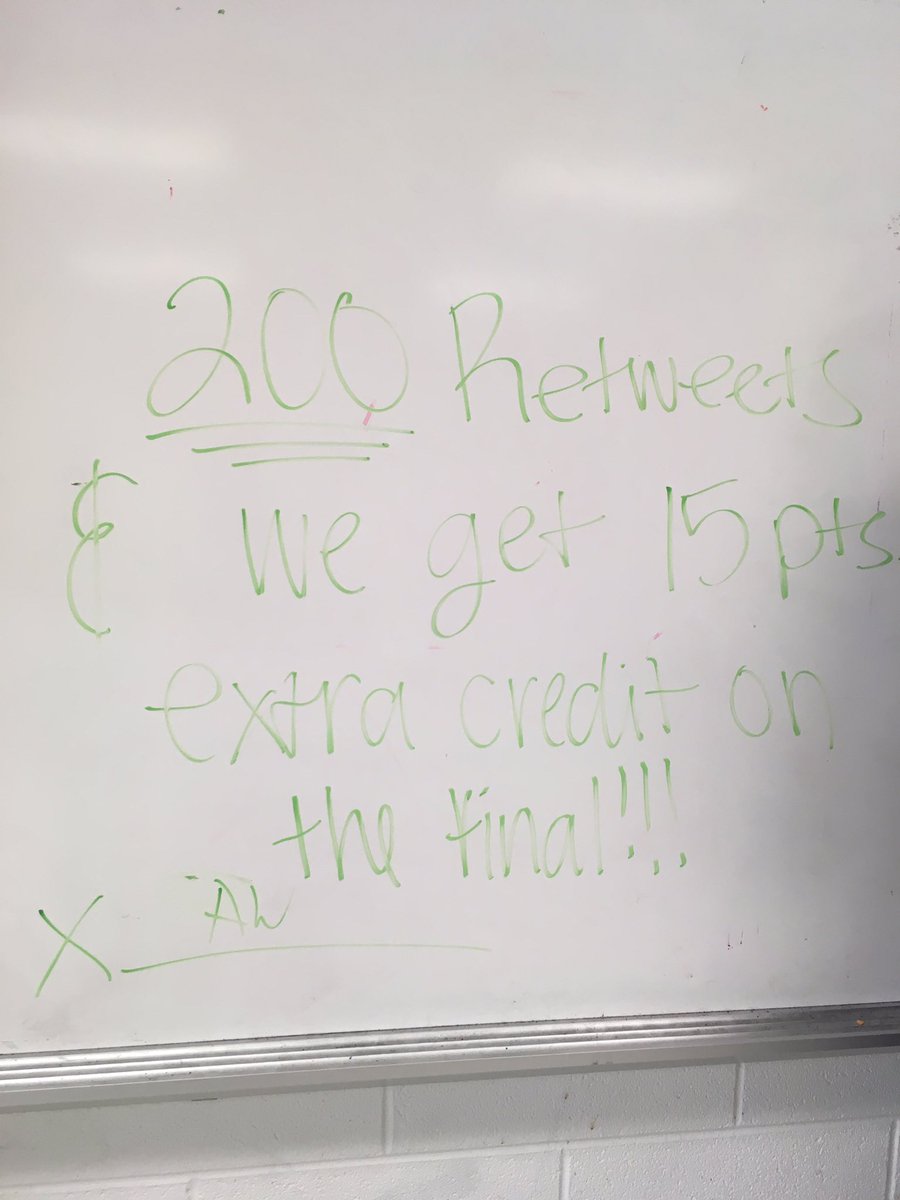 200 Retweets
& we get 15 pts.
extra credit on
the final!!!
X AW